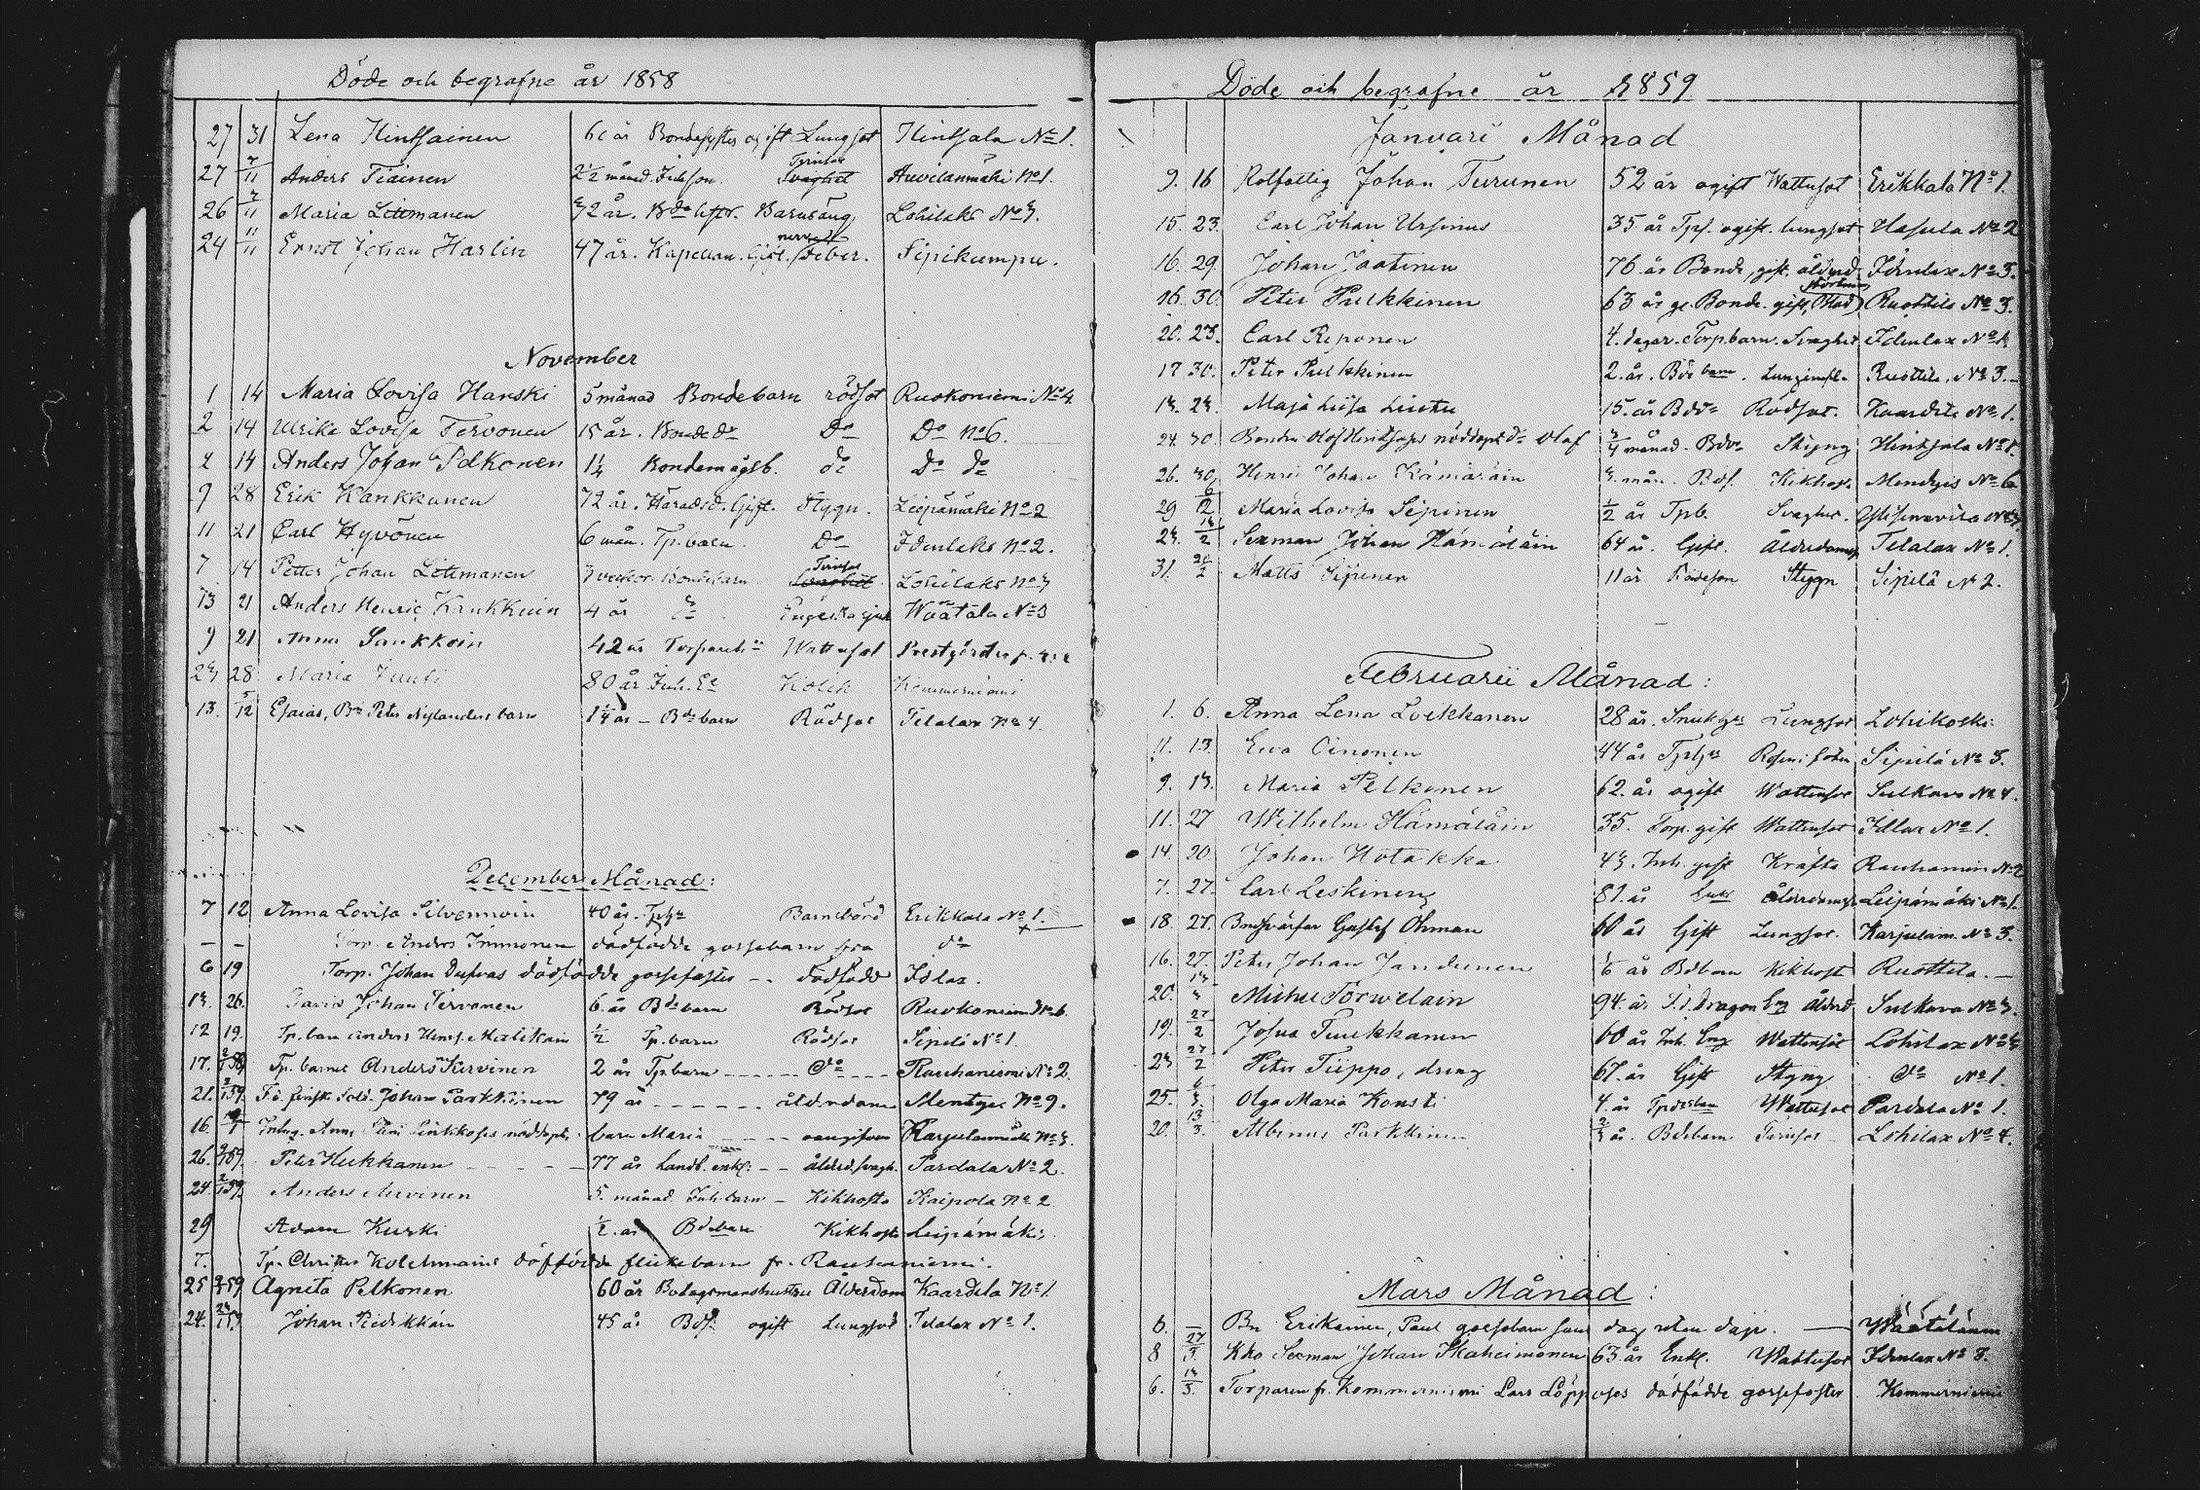 Döde och begrafne år 1858
27 31 Lena Hintsainen 60 år Bondesyster ogift Lungsot Hintsala No 1.
27 7/11 Anders Tiainen 2 1/2 månad. Inh son. Auvilanmäki No 1.
26 7/11 Maria Littmanen 32 år. Bde hstr. Barnsäng Lohilaks No 3.
24 11/11 Ernst Johan Harlin 47 år. Kapellan. Gift. nerv feber. Sipikumpu.
November
1 14 Maria Lovisa Hanski 5 månad Bondebarn rödsot Ruokoniemi No 4.
2 14 Ulrika Lovisa Tervonen 15 år. Bonde dr Do Do No 6.
2 14 Anders Johan Pelkonen 1 1/4 Bondemågsb. do Do do
9 28 Erik Kankkunen 72 år. Häradsd. Gift. Stygn. Leipämäki No 2
11 21 Carl Hyvönen 6 mån. Tp. barn Do Idenlaks No 2.
7 14 Petter Johan Littmanen 3 veckor. Bondebarn. Lohilaks No 3
13 21 Anders Henric Kankkuin 4 år do Engelska sjuk Wäätälä No 3
9 21 Anna Sankkoin 42 år Torpareh:u Wattusot
23 28 Maria 80 år Inh. Ea Kolik Kommerniemi
13. 5/12 Esaias, Bn Peter Nylanders barn 1 1/4 år - Bdebarn Rödsot Telalax No 4.
December Månad:
7 12 Anna Lovisa Silvennoin 40 år. Tphu Barnsbörd Erikkala No 1.
- - Torp. Anders Immonens dödfödde gossebarn fra do
6 19 Torp. Johan Dufvas dödfödde gossefoster -- dödfödd Idlax.
13. 26. David Johan Tervonen 6. år Bde barn Rödsot Ruokoniemi No 6.
12 19. Tp. barn Anders Henr. Malikain 1/2 Tp. barn Rödsot Sipilä No 1.
17. Tp. barnet Anders Kervinen 2 år Tp. barn do Rauhaniemi No 2.
21. Fd. finsk Sold. Johan Parkkinen 79 år ålderdom Mentyes No 9.
16. Inhg. Anna Sinkkoses nöddöpt. barn Maria Karjulanmäki No 3.
26. Peter Hukkanen 77 år Landb. enkl. -- ålderd. svagh. Pardala No 2.
24. Anders Auvinen 5. månad. Inh. barn - Kikhosta Kaipola No 2
29 Adam Kurki 1/2. år Bdebarn Kikhosta Leipämäki
7. Tp. Christer Kolehmains dödfödde flickebarn fr. Rauhaniemi.
25 Agneta Pelkonen 60 år Bolagsmanshustru Ålderdom Kaardila No 1
24. Johan Piedikkäin 45 år Bds. ogift Lungsot Telalax No 1.
Döde och begrafne år 1859
Januari Månad
9. 16 Rotfattig Johan Turunen 52 år ogift Wattusot Erikkala No 1.
15. 23. Carl Johan Ursinus 35 år Tps. ogift. lungsot Hasula No 2
16. 29. Johan Jaatinen 76 år Bonde, gift. ålderd. Idenlax No 5.
16. 30. Peter Pulkkinen 63 år ge. Bonde. gift. Ruottila No 3.
20. 23. Carl Reponen 4. dagar. Torp. barn. Svaghet Idenlax No 1
17 30. Peter Pulkkinen 2. år. Bde barn. Lunginfl. Ruottila, No 3.
13. 23. Maja Lisa Liuttu 15. år Bddr Rödsot. Kaardila No 1.
24. 30. Bonden Olof Hintsas nöddöpte s. Olof 3/4 månad. Bds Stygn Hintsala No 1.
26. 30. Henric Johan Hämäläin 3. mån. Bds. Kikhost. Mentyes No 6
29 6/2 Maria Lovisa Sipinen 1/2 år Tpb. Svaghet.
23. 13/2 Sexman Johan Hämäläin 64 år. Gift. Ålderdomsv. Telalax No 1.
31. 20/2 Matts Sipinen 11 år Stygn Sipilä No 2.
Februarii Månad:
1. 6. Anna Lena Loikkanen 28 år. Snickhu Lungsot Lohikoski
11. 13. Eva Oinonen 44 år Tphu Sipilä No 3.
9. 13. Maria Pelkonen 62. år ogift Wattusot Sulkava No 4.
11. 27 Wilhelm Hämäläin 35. Torp. gift Wattusot Idlax No 1.
14. 20 Johan Hotakka 43. Inh. gift Kräfta Rauhaniemi No 2
7. 27. Carl Leskinen 81. år Ålderdomsv. Leipämäki No 1.
18. 27. Gustef Öhman 60 år Gift Lungsot. Karjulanm. No 3.
16. 27. Peter Johan Jandunen 1/6 år Bdbarn Kikhost Ruottila. -
20. 13/3 Michel Torwelain 94. år f.d. dragon Enk. ålderd. Sulkava No 3.
19. 27/2 Josua Tuukkanen 60 år Inh. Enk Wattusot Lohilax No 4
23 27/2 Peter Tiippo, dreng 67. år Gift Stygn do No 1.
25. 6/3. Olga Maria Konsti 4. år Wattusot Pardala No 1.
20. 13/3. Albinus Parkkinen 2/3 år. Bdebarn Torinsot Lohilax No 4.
Mars Månad:
6. - Bn Erikainen, Paul gossebarn utan döpt. Wäätälänm
8 27/3. Kko Sexman Johan Maheimonen 63. år Enkl. Wattusot Idenlax No 3.
6. 13/3. Torparen fr. Kommerniemi Lars Löppöses dödfödde gossefoster. Kommerniemi